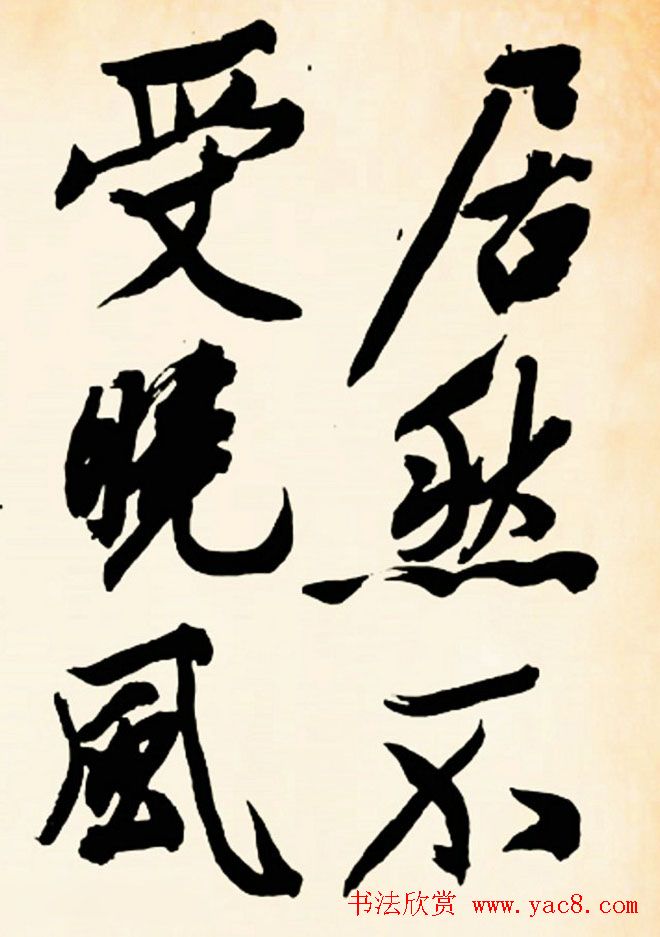 居然不
受曉風
书法欣赏 www.yac8.com